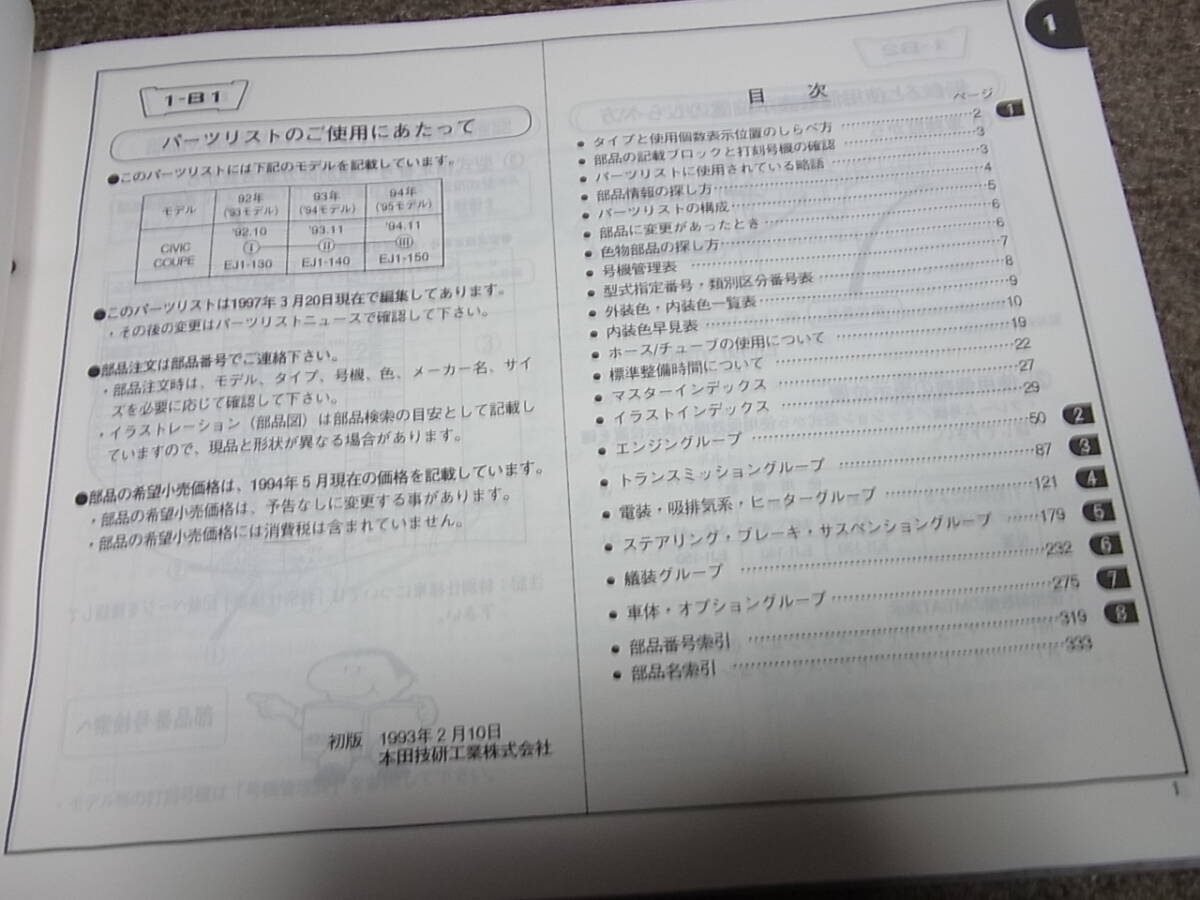 1-B1
パーツリストのご使用にあたって
●このパーツリストには下記のモデルを記載しています。
モデル 92年 ('93モデル) 93年 ('94モデル) 94年 ('95モデル)
CIVIC COUPE '92.10 Ⓘ EJ1-130 '93.11 Ⅱ EJ1-140 '94.11 Ⅲ EJ1-150
●このパーツリストは1997年3月20日現在で編集してあります。
・その後の変更はパーツリストニュースで確認して下さい。
●部品注文は部品番号でご連絡下さい。
・部品注文時は、モデル、タイプ、号機、色、メーカー名、サイ
ズを必要に応じて確認して下さい。
・イラストレーション（部品図）は部品検索の目安として記載し
ていますので、現品と形状が異なる場合があります。
●部品の希望小売価格は、1994年5月現在の価格を記載しています。
・部品の希望小売価格は、予告なしに変更する事があります。
・部品の希望小売価格には消費税は含まれていません。
初版 1993年2月10日
本田技研工業株式会社
目 次
ページ
● タイプと使用個数表示位置のしらべ方 ……2
● 部品の記載ブロックと打刻号機の確認 ……3
● パーツリストに使用されている略語 ……3
● 部品情報の探し方 ……4
● パーツリストの構成 ……5
● 部品に変更があったとき ……6
● 色物部品の探し方 ……6
● 号機管理表 ……7
● 型式指定番号・類別区分番号表 ……8
● 外装色・内装色一覧表 ……9
● 内装色早見表 ……10
● ホース/チューブの使用について ……19
● 標準整備時間について ……22
● マスターインデックス ……27
● イラストインデックス ……29
● エンジングループ ……50
● トランスミッショングループ ……87
● 電装・吸排気系・ヒーターグループ ……121
● ステアリング・ブレーキ・サスペンショングループ ……179
● 艤装グループ ……232
● 車体・オプショングループ ……275
● 部品番号索引 ……319
● 部品名索引 ……333
1
1
2
3
4
5
6
7
8
1